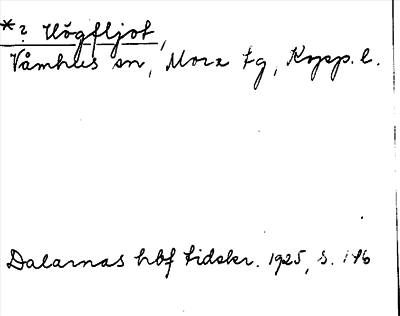 *? Högfljot,
Våmhus sn, Mora tg, Kopp. l.
Dalarnas hbf tidskr. 1925, s. 146